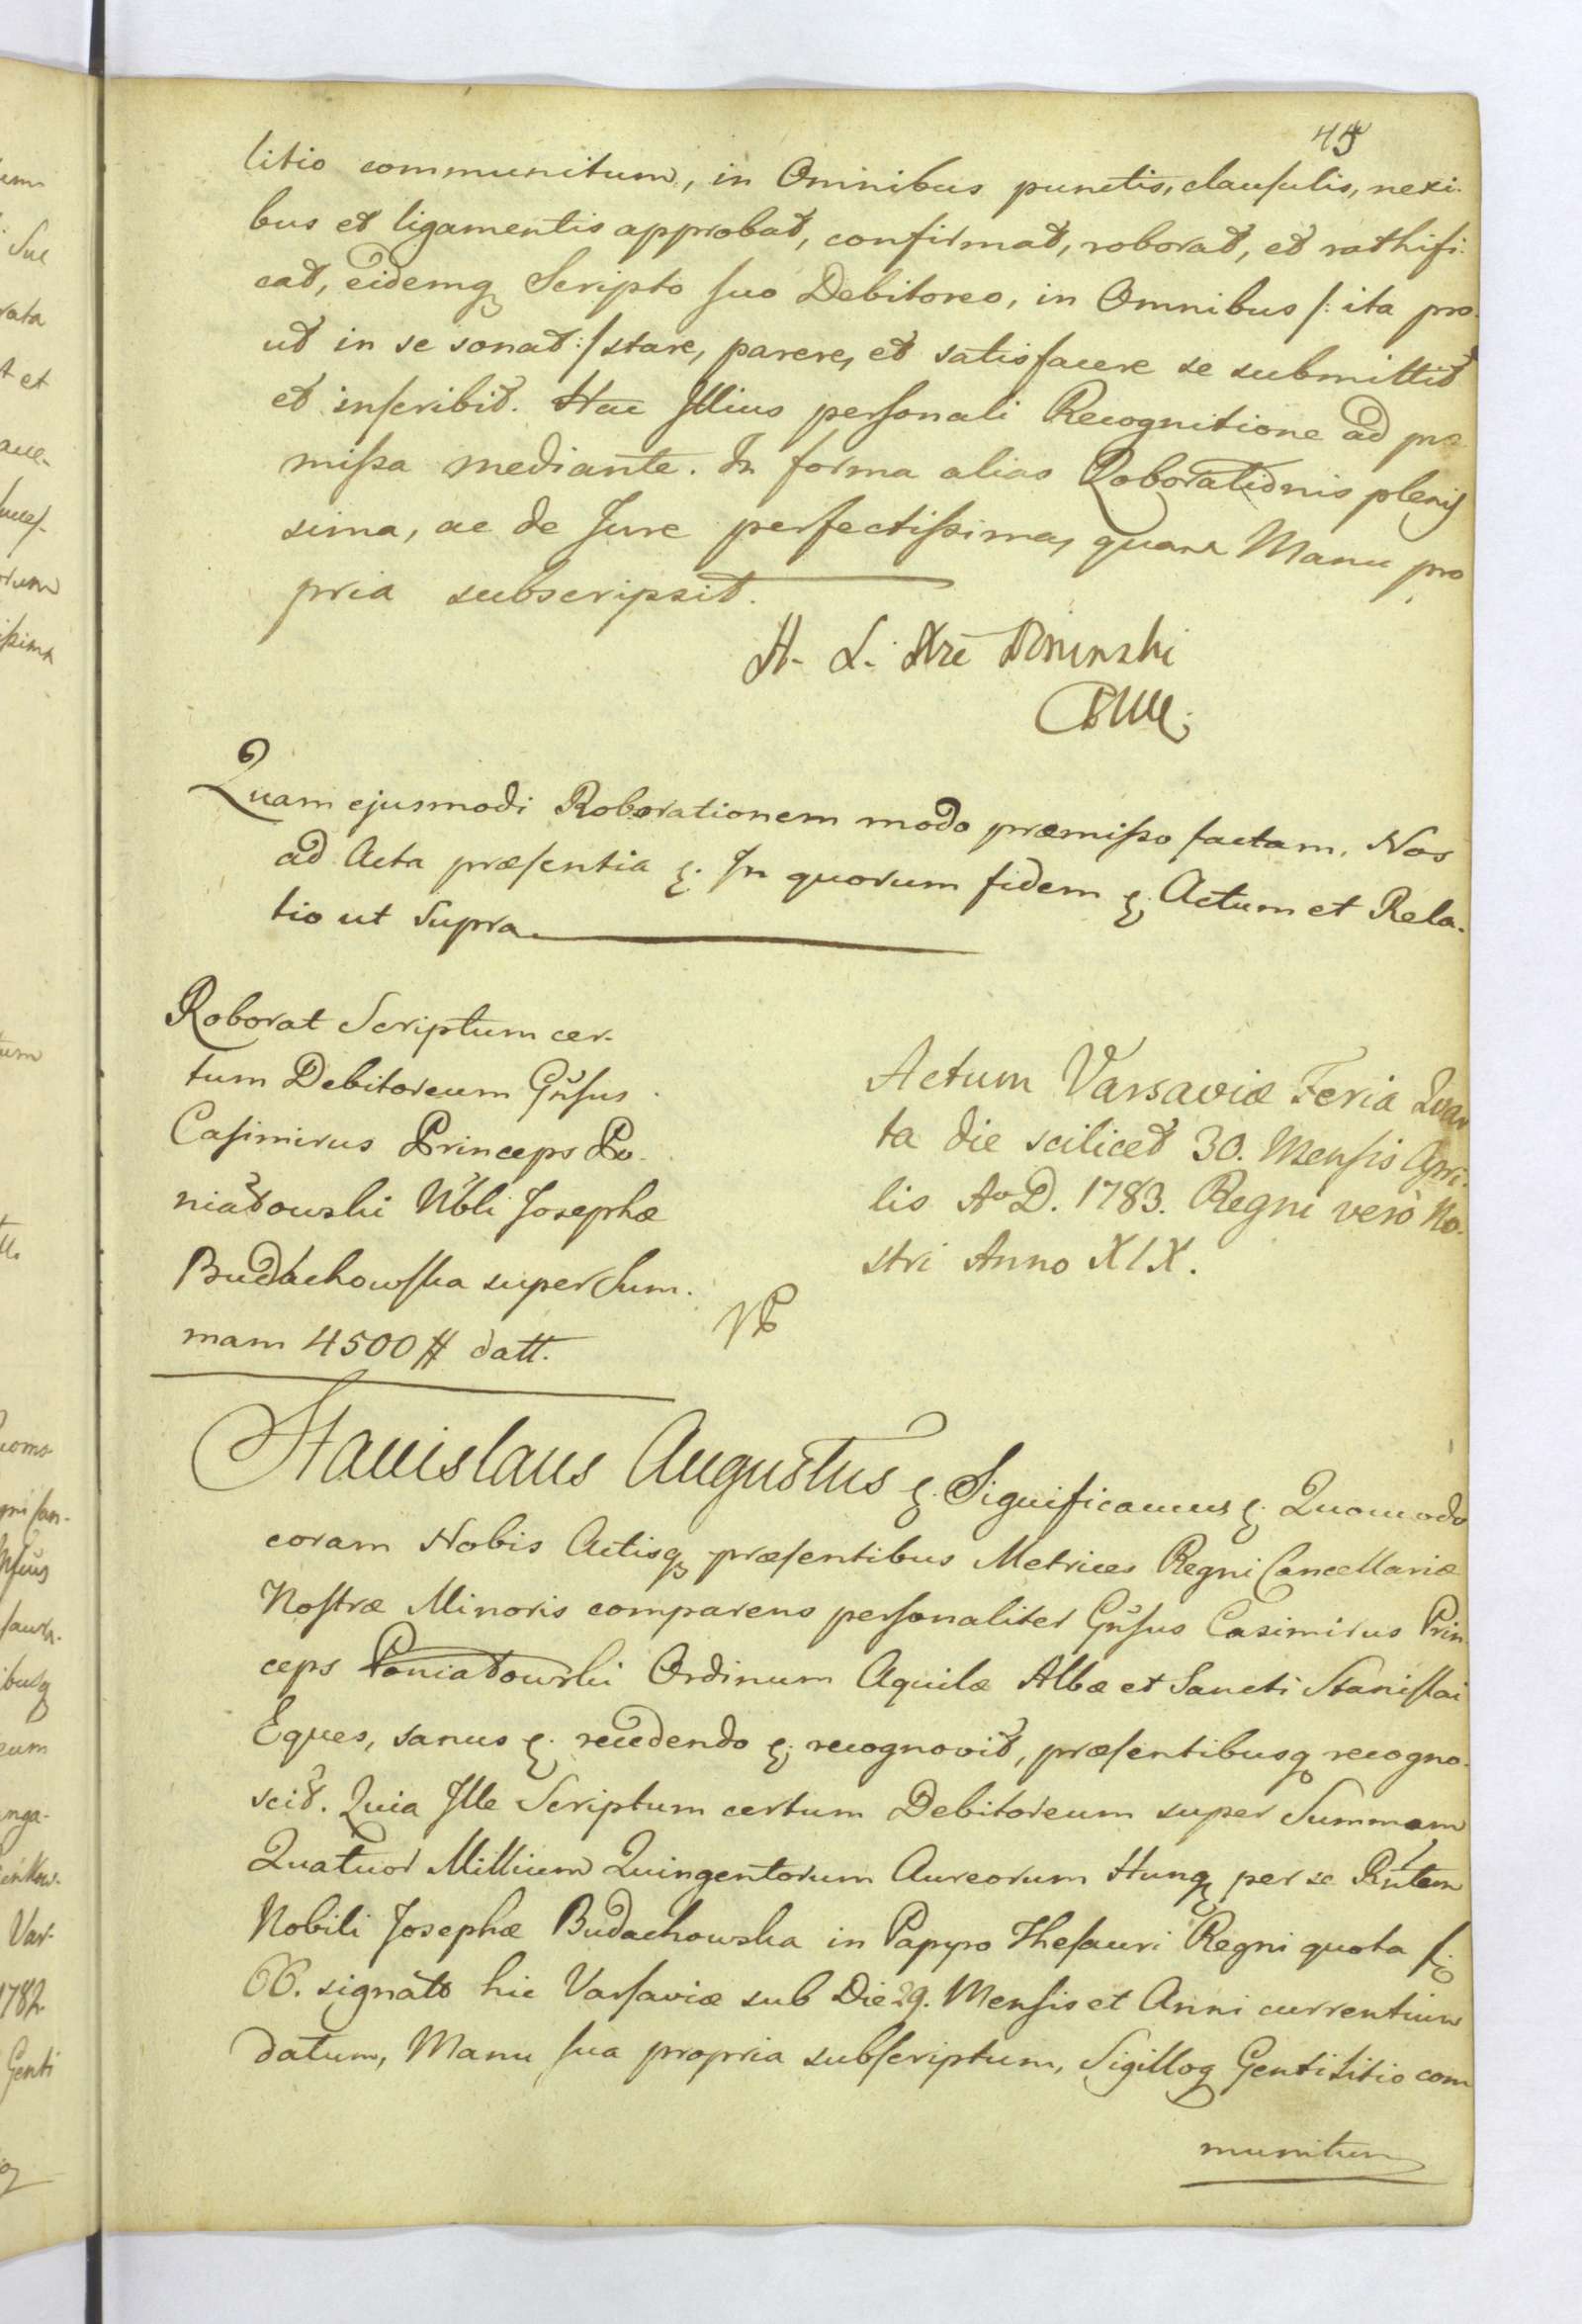 45
litio communitum, in Omnibus punctis, clausulis, nexi-
bus et ligamentis approbat, confirmat, roborat, et rathifi-
cat, eidemq Scripto suo Debitoreo, in Omnibus /: ita pro-
ut in se sonat :/ stare, parere, et satisfacere se submittit
et inscribit. Hac Illius personali Recognitione ad præ
missa mediante. In forma alias Roborationis plenis
sima, ac de Jure perfectissima, quam Manu pro
pria subscripsit.
Quam ejusmodi Roborationem modo præmisso factam, Nos
ad Acta præsentia &. In quorum fidem &. Actum et Rela-
tio ut Supra.
Roborat Scriptum cer-
tum Debitoreum Gñsus
Casimirus Princeps Po-
niatowski Nbli Josephæ
Budachowska super Sum-
mam 4500 # datt.
Actum Varsaviæ Feria Quar
ta die scilicet 30. Mensis Apri-
lis Aº D. 1783. Regni verò No-
stri Anno XIX.
Stanislaus Augustus &. Significamus &. Quomodo
coram Nobis Actisq præsentibus Metrices Regni Cancellariæ
Nostræ Minoris comparens personaliter Gñsus Casimirus Prin
ceps Poniatowski Ordinum Aquilæ Albæ et Sancti Stanislai
Eques, sanus &. recedendo &. recognovit, præsentibusq recogno-
scit. Quia Ille Scriptum certum Debitoreum super Summam
Quatuor Millium Quingentorum Aureorum Hung per se Rñtem
Nobili Josephæ Budachowska in Papyro Thesauri Regni quota
66. signato hic Varsaviæ sub Die 29. Mensis et Anni currentium
datum, Manu sua propria subscriptum, Sigilloq Gentilitio com
munitum